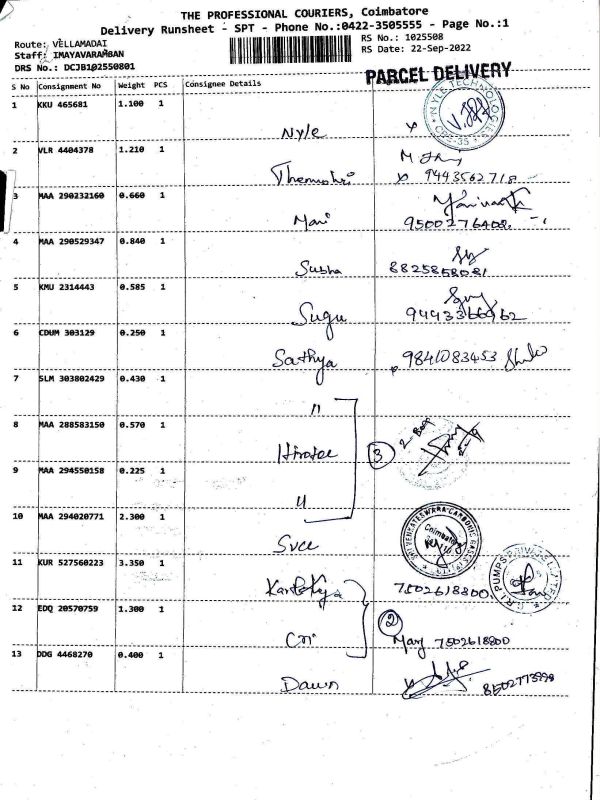 THE PROFESSIONAL COURIERS, Coimbatore
Delivery Runsheet - SPT - Phone No.:0422-3505555 - Page No.:1
Route: VELLAMADAI
RS No.: 1025508
Staff: IMAYAVARAMBAN
RS Date: 22-Sep-2022
DRS No.: DCJB102550801
PARCEL DELIVERY
S No Consignment No Weight PCS Consignee Details
1 KKU 465681 1.100 1
Nyle
NYLE TECHNOLOGIES
2 VLR 4404378 1.210 1
9443562718
3 MAA 290232160 0.660 1
Mari 9500276408
4 MAA 290529347 0.840 1
Susha 8825868081
5 KMU 2314443 0.585 1
Sugu
6 CDUM 303129 0.250 1
Sathya 9841083453
7 SLM 303802429 0.430 1
"
8 MAA 288583150 0.570 1
3
9 MAA 294550158 0.225 1
"
10 MAA 294020771 2.300 1
Svce
Coimbatore
11 KUR 527560223 3.350 1
7502618800
12 EDQ 20570759 1.300 1
2
Cri Mary 7502618800
13 DDG 4468270 0.400 1
Dawn